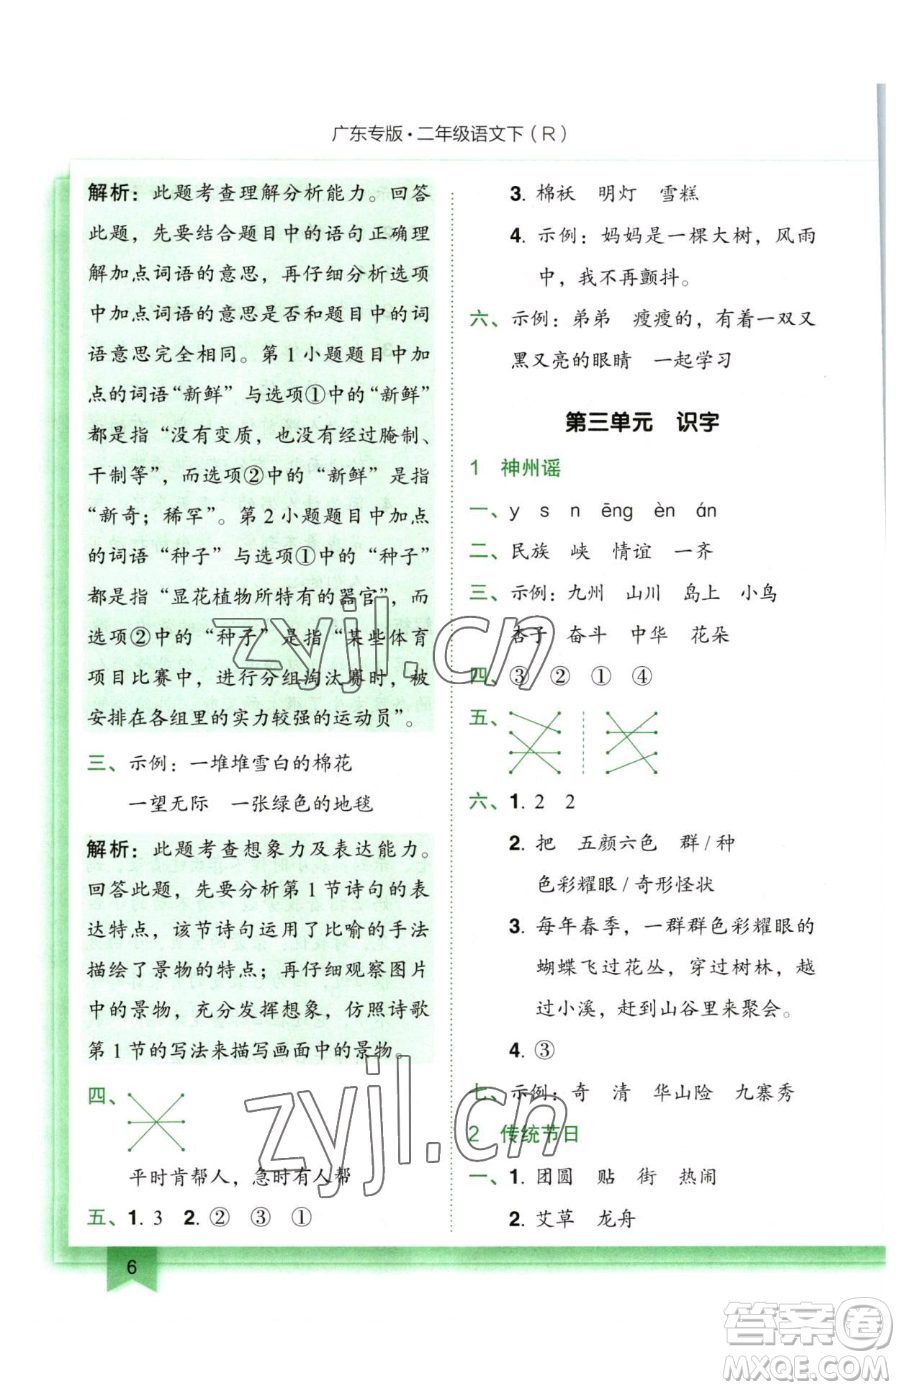 广东专版·二年级语文下(R)
解析：此题考查理解分析能力。回答
此题，先要结合题目中的语句正确理
解加点词语的意思，再仔细分析选项
中加点词语的意思是否和题目中的词
语意思完全相同。第1小题题目中加
点的词语“新鲜”与选项①中的“新鲜”
都是指“没有变质，也没有经过腌制、
干制等”，而选项②中的“新鲜”是指
“新奇；稀罕”。第2小题题目中加点
的词语“种子”与选项①中的“种子”
都是指“显花植物所特有的器官”，而
选项②中的“种子”是指“某些体育
项目比赛中，进行分组淘汰赛时，被
安排在各组里的实力较强的运动员”。
三、示例：一堆堆雪白的棉花
一望无际 一张绿色的地毯
解析：此题考查想象力及表达能力。
回答此题，先要分析第1节诗句的表
达特点，该节诗句运用了比喻的手法
描绘了景物的特点；再仔细观察图片
中的景物，充分发挥想象，仿照诗歌
第1节的写法来描写画面中的景物。
四、
平时肯帮人，急时有人帮
五、1. 3 2. ② ③ ①
6
3. 棉袄 明灯 雪糕
4. 示例：妈妈是一棵大树，风雨
中，我不再颤抖。
六、示例：弟弟 瘦瘦的，有着一双又
黑又亮的眼睛 一起学习
第三单元 识字
1 神州谣
一、y s n ēng èn án
二、民族 峡 情谊 一齐
三、示例：九州 山川 岛上 小鸟
杏子 奋斗 中华 花朵
四、③ ② ① ④
五、
六、1. 2 2
2. 把 五颜六色 群/种
色彩耀眼/奇形怪状
3. 每年春季，一群群色彩耀眼的
蝴蝶飞过花丛，穿过树林，越
过小溪，赶到山谷里来聚会。
4. ③
七、示例：奇 清 华山险 九寨秀
2 传统节日
一、1. 团圆 贴 街 热闹
2. 艾草 龙舟
zyjl.cn
zyjl.cn
答案圈
MXQE.COM